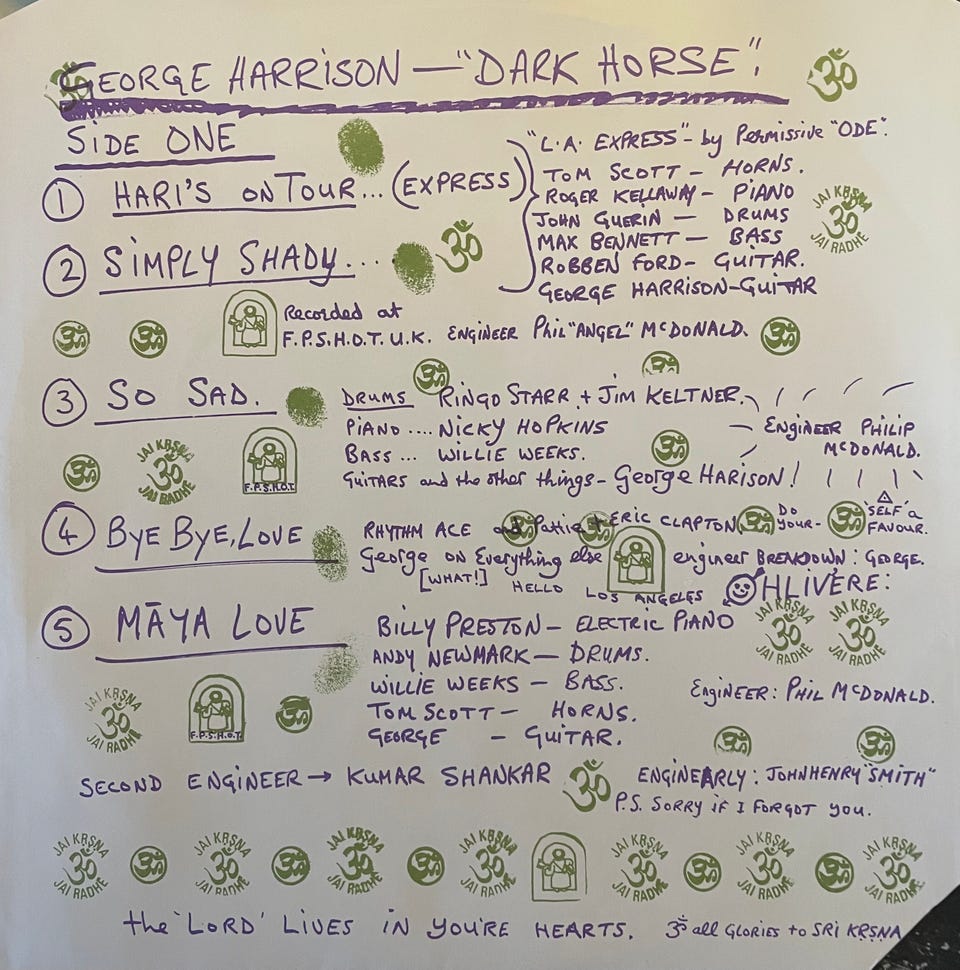 GEORGE HARRISON — "DARK HORSE".
SIDE ONE
① HARI'S ON TOUR... (EXPRESS)
"L.A. EXPRESS" - by Permissive "ODE".
TOM SCOTT — HORNS.
ROGER KELLAWAY - PIANO
JOHN GUERIN — DRUMS
MAX BENNETT — BASS
ROBBEN FORD - GUITAR.
GEORGE HARRISON - GUITAR
JAI KṚṢNA
ॐ
JAI RADHE
② SIMPLY SHADY....
ॐ
Recorded at
F.P.S.H.O.T. U.K. ENGINEER Phil "ANGEL" McDONALD.
③ SO SAD.
DRUMS RINGO STARR + JIM KELTNER.
PIANO .... NICKY HOPKINS
BASS ... WILLIE WEEKS.
GUITARS and the other things - George HARISON!
ENGINEER PHILIP
McDONALD.
JAI KṚṢNA
ॐ
JAI RADHE
F.P.S.H.O.T.
④ BYE BYE, LOVE
RHYTHM ACE and Pattie + ERIC CLAPTON
DO
YOUR-
'SELF' a
FAVOUR.
George on Everything else engineer BREAKDOWN : GEORGE.
[WHAT!] HELLO LOS ANGELES
OHLIVERE:
⑤ MĀYA LOVE
BILLY PRESTON — ELECTRIC PIANO
ANDY NEWMARK — DRUMS.
WILLIE WEEKS — BASS.
TOM SCOTT — HORNS.
GEORGE - GUITAR.
JAI KṚṢNA ॐ JAI RADHE
JAI KṚṢNA ॐ JAI RADHE
Engineer: PHIL McDONALD.
JAI KṚṢNA
ॐ
JAI RADHE
F.P.S.H.O.T.
SECOND ENGINEER → KUMAR SHANKAR
ॐ
ENGINEARLY: JOHN HENRY "SMITH"
P.S. SORRY IF I FORGOT YOU.
JAI KṚṢNA ॐ JAI RADHE ॐ JAI KṚṢNA ॐ JAI RADHE ॐ JAI KṚṢNA ॐ JAI RADHE ॐ JAI KṚṢNA ॐ JAI RADHE JAI KṚṢNA ॐ JAI RADHE ॐ JAI KṚṢNA ॐ JAI RADHE ॐ JAI KṚṢNA ॐ JAI RADHE
the 'LORD' LIVES IN YOU'RE HEARTS. ॐ all GLORIES to SRI KṚṢNA